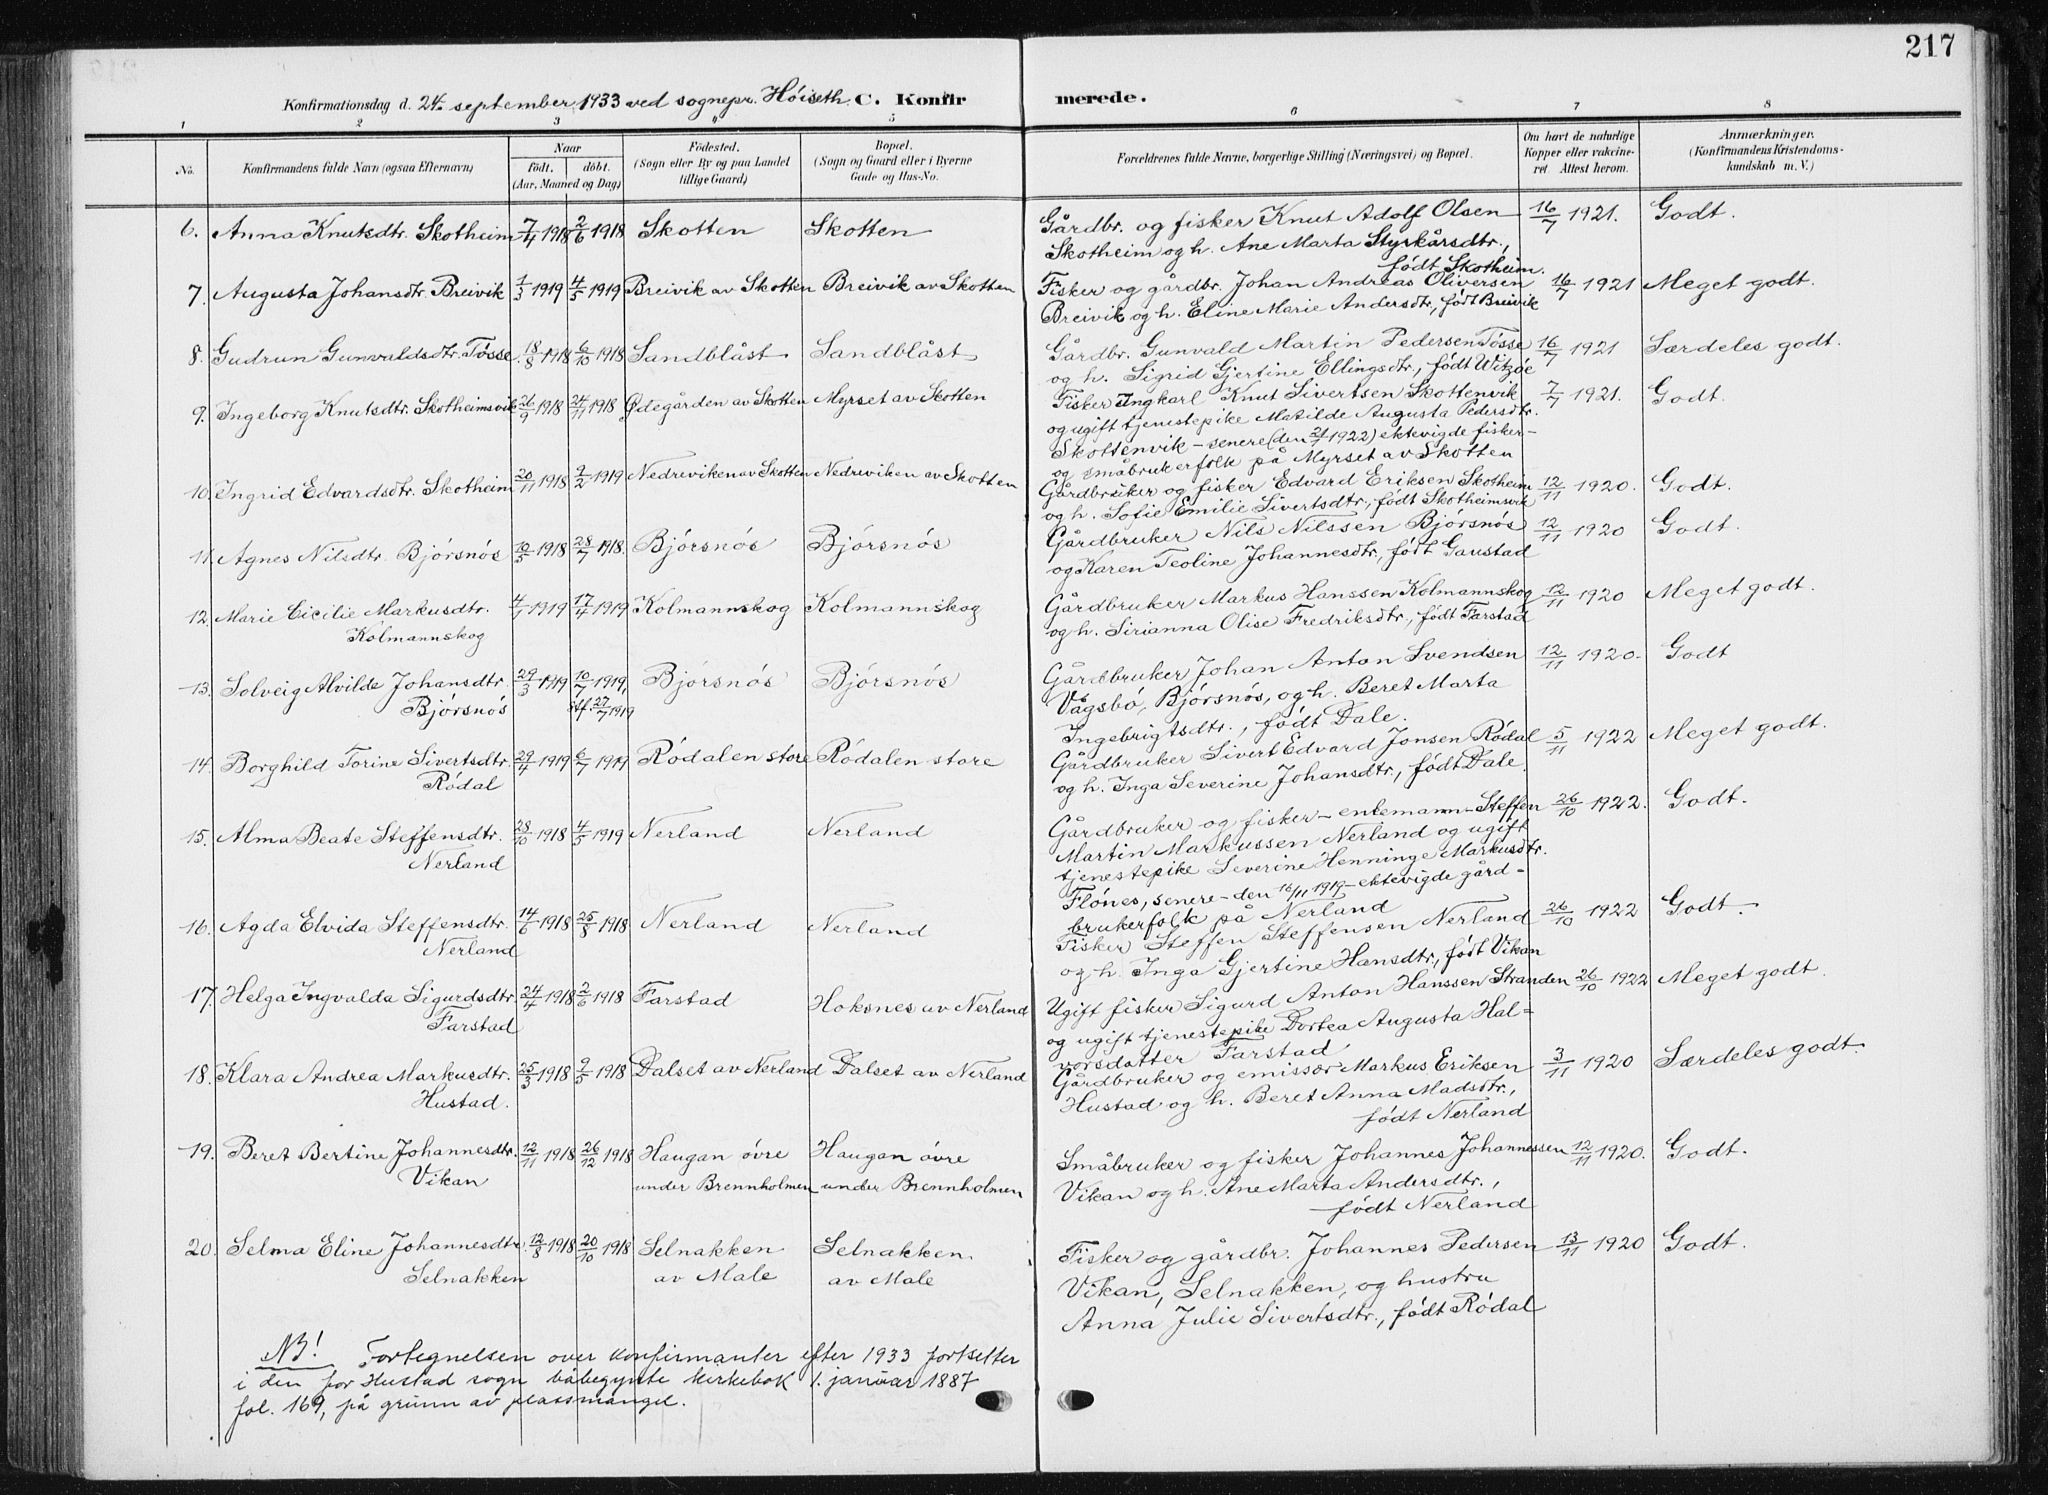 217
Konfirmationsdag d. 24. september 1933 ved sognepr. Høiseth. C. Konfirmerede.
1 2 3 4 5 6 7 8
No.
Konfirmandens fulde Navn (ogsaa Efternavn)
Naar
født. døbt.
(Aar, Maaned og Dag)
Fødested.
(Sogn eller By og paa Landet
tillige Gaard)
Bopæl.
(Sogn og Gaard eller i Byerne
Gade og Hus-No.
Forældrenes fulde Navne, borgerlige Stilling (Næringsvei) og Bopæl.
Om havt de naturlige
Kopper eller vakcine-
ret Attest herom.
Anmærkninger.
(Konfirmandens Kristendoms-
kundskab m. V.)
6. Anna Knutsdtr. Skotheim 7/4 1918 2/6 1918 Skotten Skotten Gårdbr. og fisker Knut Adolf Olsen 16/7 1921. Godt.
Skotheim og h. Ane Marta Styrkårsdtr.,
født Skotheim.
7. Augusta Johansdtr. Breivik 1/3 1919 4/5 1919 Breivik av Skotten Breivik av Skotten Fisker og gårdbr. Johan Andreas Oliversen 16/7 1921 Meget godt.
Breivik og h. Eline Marie Andersdtr., født Breivik
8. Gudrun Gunvaldsdtr. Tøsse 18/8 1918 6/10 1918 Sandblåst Sandblåst Gårdbr. Gunvald Martin Pedersen Tøsse 16/7 1921 Særdeles godt.
og h. Sigrid Gjertine Ellingsdtr., født Witzøe
9. Ingeborg Knutsdtr. Skotheimsvik 26/9 1918 24/11 1918 Øitegården av Skotten Myrset av Skotten Fisker Ingkarl Knut Sivertsen Skottenvik 7/7 1921. Godt.
og ugift tjenestepike Matilde Augusta Pedersdtr.
Skottenvik – senere (den 21/1 1922) ektevigde fisker-
og småbrukerfolk på Myrset av Skotten
10. Ingrid Edvardsdtr. Skotheim 20/11 1918 9/2 1919 Nedreviken av Skotten Nedreviken av Skotten Gårdbruker og fisker Edvard Eriksen Skotheim 12/11 1920. Godt.
og h. Sofie Emilie Sivertsdtr., født Skotheimsvik
11. Agnes Nilsdtr. Bjørsnøs 10/5 1918 28/7 1918. Bjørsnøs Bjørsnøs Gårdbruker Nils Nilssen Bjørsnøs 12/11 1920 Godt.
og Karen Teoline Johannesdtr., født Gaustad
12. Marie Cicilie Markusdtr. 4/1 1919 17/4 1919 Kolmannskog Kolmannskog Gårdbruker Markus Hanssen Kolmannskog 12/11 1920 Meget godt.
Kolmannskog
og h. Sirianna Olise Fredriksdtr., født Farstad
13. Solveig Alvilde Johansdtr. 29/3 1919 10/7 1919, Bjørsnøs Bjørsnøs Gårdbruker Johan Anton Svendsen 12/11 1920. Godt
Bjørsnøs stf. 27/7 1919
Vågsbø, Bjørsnøs, og h. Beret Marta
Ingebrigtsdtr., født Dale.
14. Borghild Torine Sivertsdtr. 29/4 1919 6/7 1919 Rødalen store Rødalen store Gårdbruker Sivert Edvard Jonsen Rødal 5/11 1922 Meget godt.
Rødal
og h. Inga Severine Johansdtr., født Dale.
15. Alma Beate Steffensdtr. 28/10 1918 4/5 1919 Nerland Nerland Gårdbruker og fisker – enkemann – Steffen 26/10 1922. Godt.
Nerland
Martin Markussen Nerland og ugift
tjenestepike Severine Henninge Markusdtr.
Flønes, senere – den 16/11 1919 – ektevigde gård-
brukerfolk på Nerland
16. Agda Elvida Steffensdtr. 14/6 1918 25/8 1918 Nerland Nerland Fisker Steffen Steffensen Nerland 26/10 1922 Godt.
Nerland
og h. Inga Gjertine Hansdtr., født Vikan
17. Helga Ingvalda Sigurdsdtr. 24/4 1918 2/6 1918 Farstad Hoksnes av Nerland Ugift fisker Sigurd Anton Hanssen Stranden 26/10 1922 Meget godt.
Farstad
og ugift tjenestepike Dortea Augusta Hal-
vorsdatter Farstad
18. Klara Andrea Markusdtr. 25/3 1918 9/5 1918 Dalset av Nerland Dalset av Nerland Gårdbruker og emissær Markus Eriksen 3/11 1920 Særdeles godt.
Hustad.
Hustad og h. Beret Anna Madsdtr.,
født Nerland
19. Beret Bertine Johannesdtr. 12/11 1918 26/12 1918 Haugan øvre Haugan øvre Småbruker og fisker Johannes Johannessen 12/11 1920. Godt.
Vikan under Brennholmen under Brennholmen
Vikan og h. Ane Marta Andersdtr.,
født Nerland
20. Selma Eline Johannesdtr. 12/8 1918 20/10 1918 Selnakken Selnakken Fisker og gårdbr. Johannes Pedersen 13/11 1920 Godt.
Selnakken av Male av Male
Vikan, Selnakken, og hustru
Anna Julie Sivertsdtr., født Rødal
NB! Fortegnelsen over konfirmanter efter 1933 fortsetter
i den for Hustad sogn påbegynte kirkebok 1. januar 1887
fol. 169, på grunn av plassmangel.